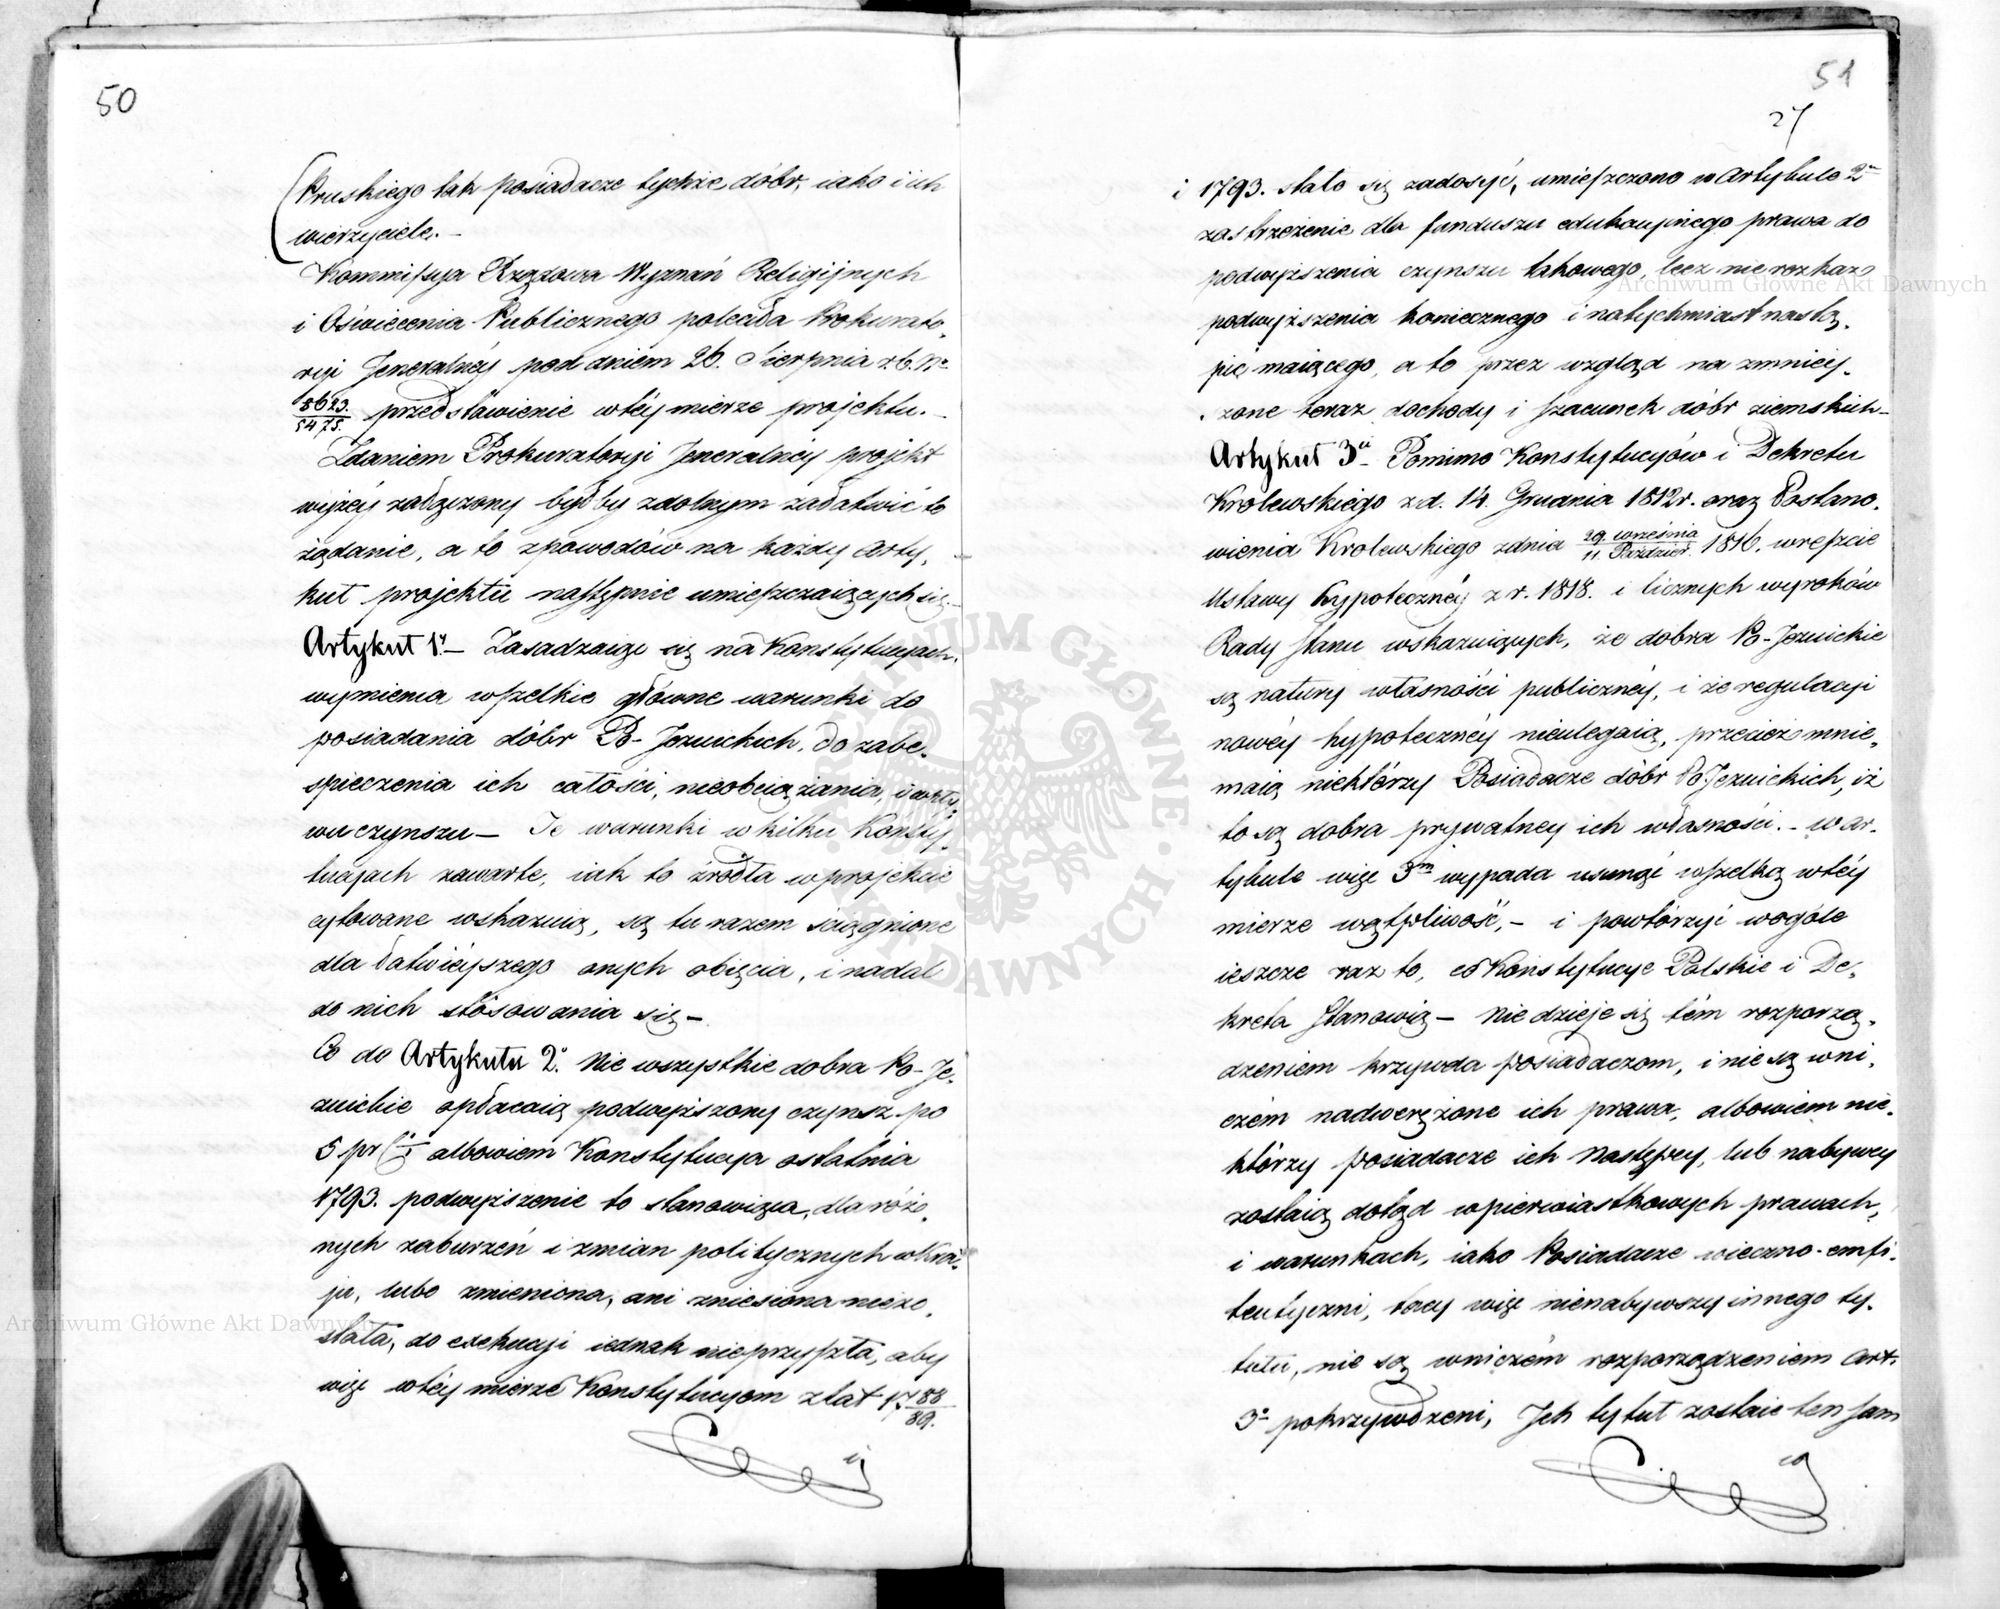 50
Pruskiego tak posiadacze tychże dóbr, iako i ich
wierzyciele. –
Kommissya Rządowa Wyznań Religijnych
i Oświecenia Publicznego poleciła Prokurato,
ryi Jeneralnéy pod dniem 26. Sierpnia r. b. Nr.
8623./5475. przedstawienie w téy mierze projektu. –
Zdaniem Prokuratoryi Jeneralnéy projekt
wyżéy załączony byłby zdolnym załatwić to
żądanie, a to z powodów na każdy Arty,
kuł projektu następnie umieszczaiących się. –
Artykuł 1y. – Zasadzaiąc się na Konstytucyach,
wymienia wszelkie główne warunki do
posiadania dóbr Po-Jezuickich, do zabe,
spieczenia ich całości, nieobciążania, i wpły,
wu czynszu – Te warunki w kilku Konsty,
tucyach zawarte, iak to źródła w projekcie
cytowane wskazuią, są tu razem ściągnione
dla łatwiéyszego onych obięcia, i nadal
do nich stósowania się –
Co do Artykułu 2o. Nie wszystkie dobra Po-Je,
zuickie opłacaią podwyższony czynsz po
5 pr albowiem Konstytucya ostatnia
1793. podwyższenie to stanowiąca, dla róż,
nych zaburzeń i zmian politycznych w Kra,
ju, lubo zmieniona, ani zniesiona niezo,
stała, do exekucyi iednak nieprzyszła, aby
więc w téy mierze Konstytucyom z lat 1788/89.
i
51
27
i 1793. stało się zadosyć, umieszczono w Artykule 2m
zastrzeżenie dla funduszu edukacyinego prawa do
podwyższenia czynszu takowego, lecz nie rozkaz
podwyższenia koniecznego i natychmiast nastą,
pić maiącego, a to przez wzgląd na zmniéy,
szone teraz dochody i szacunek dóbr ziemskich –
Artykuł 3ci – Pomimo Konstytucyów i Dekretu
Królewskiego z d. 14. Grudnia 1812r. oraz Postano,
wienia Królewskiego z dnia 29. września/11. Paździer. 1816. wreszcie
Ustawy hypotecznéy z r. 1818. i licznych wyroków
Rady Stanu wskazuiących, że dobra Po-Jezuickie
są natury własności publicznéy, i że regulacyi
nowéy hypotecznéy nieulegaią, przecież mnie,
maią niektórzy Posiadacze dóbr Po-Jezuickich, iż
to są dobra prywatney ich własności. – w Ar,
tykule więc 3m wypada usunąć wszelką w téy
mierze wątpliwość, – i powtórzyć wogóle
ieszcze raz to, co Konstytucye Polskie i De,
kreta Stanowią – Nie dzieje się tém rozporzą,
dzeniem krzywda posiadaczom, i nie są w ni,
czém nadwerężone ich prawa, albowiem nie,
którzy posiadacze ich Następcy, lub nabywcy
zostaią dotąd w pierwiastkowych prawach,
i warunkach, iako Posiadacze wieczno-emfi,
teutyczni, tacy więc nienabywszy innego ty,
tułu, nie są w niczém rozporządzeniem Art.
3o pokrzywdzeni, Ich tytuł zostaie ten sam
co
Archiwum Główne Akt Dawnych
Archiwum Główne Akt Dawnych
ARCHIWUM GŁÓWNE AKT DAWNYCH